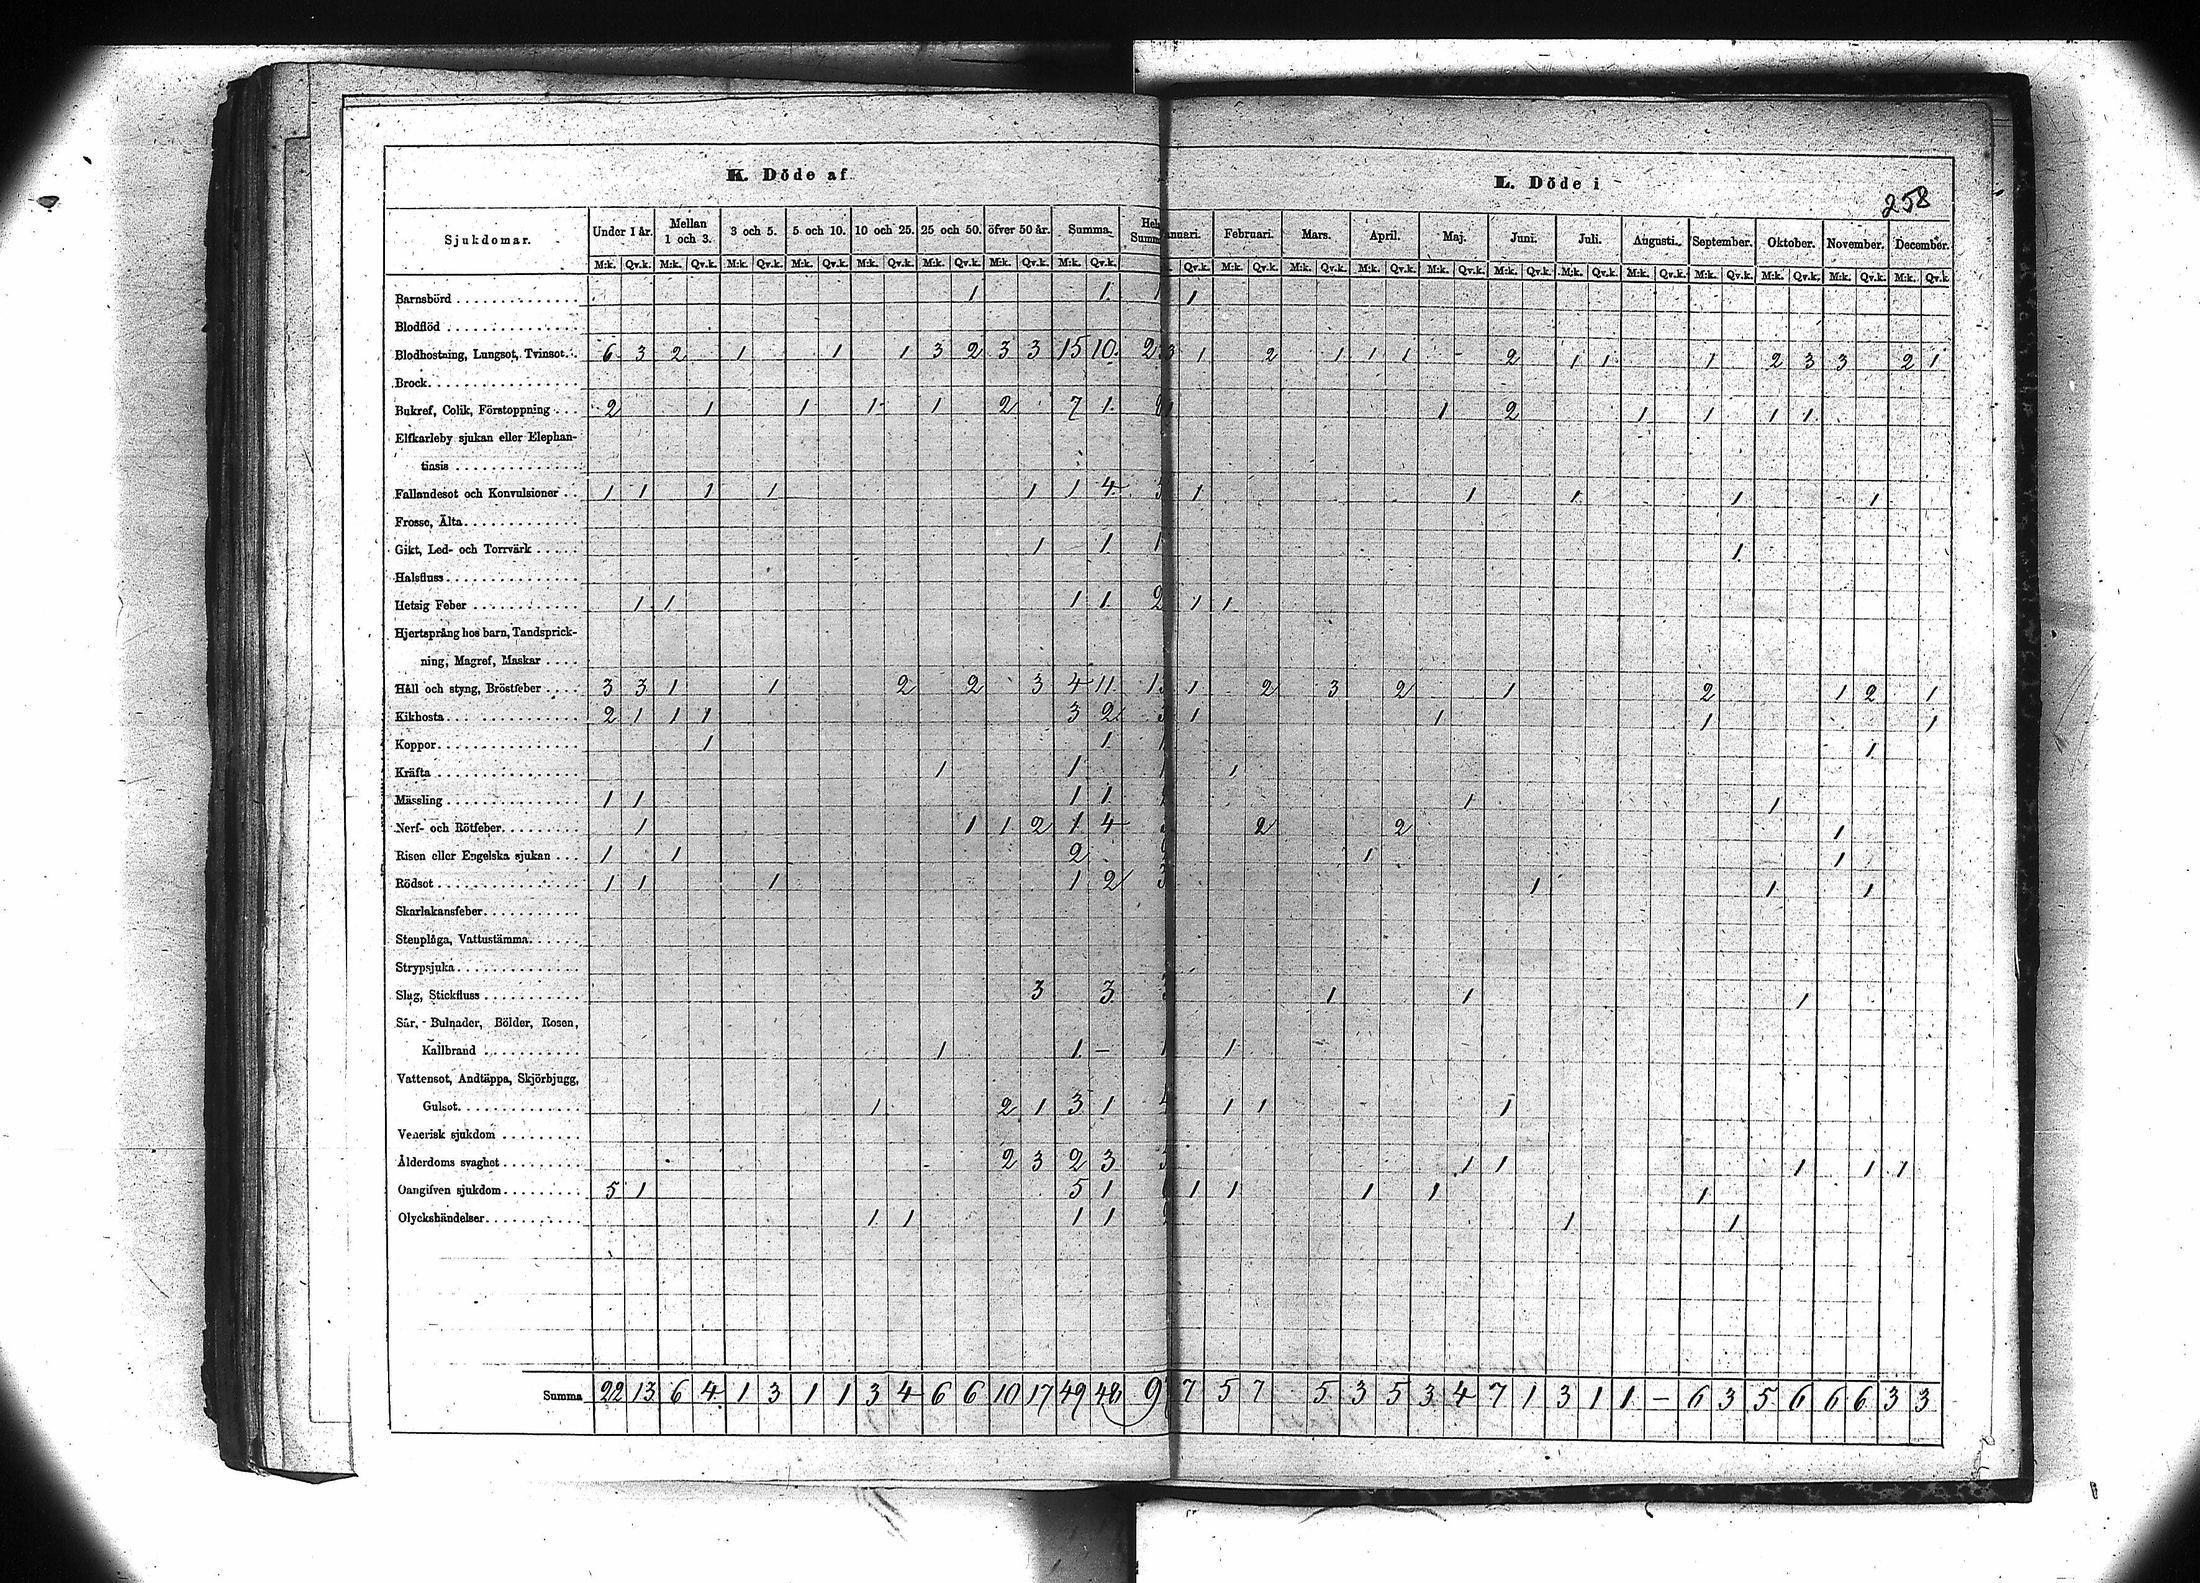 K. Döde af
L. Döde i
258
Sjukdomar. Under 1 år. Mellan 1 och 3. 3 och 5. 5 och 10. 10 och 25. 25 och 50. öfver 50 år. Summa. Februari. Mars. April. Maj. Juni. Juli. Augusti. September. Oktober. November. December.
M:k. Qv.k. M:k. Qv.k. M:k. Qv.k. M:k. Qv.k. M:k. Qv.k. M:k. Qv.k. M:k. Qv.k. M:k. Qv.k. Qv.k. M:k. Qv.k. M:k. Qv.k. M:k. Qv.k. M:k. Qv.k. M:k. Qv.k. M:k. Qv.k. M:k. Qv.k. M:k. Qv.k. M:k. Qv.k. M:k. Qv.k. M:k. Qv.k.
Barnsbörd 1 1 1 1
Blodflöd
Blodhostning, Lungsot, Tvinsot 6 3 2 1 1 1 3 2 3 3 15 10 2 3 1 2 1 1 1 2 1 1 1 2 3 3 2 1
Brock
Bukref, Colik, Förstoppning 2 1 1 1 1 2 7 1 1 1 2 1 1 1 1
Elfkarleby sjukan eller Elephan-
tiasis
Fallandesot och Konvulsioner 1 1 1 1 1 1 4 1 1 1 1 1
Frosse, Älta
Gikt, Led- och Torrvärk 1 1 1 1
Halsfluss
Hetsig Feber 1 1 1 1 2 1 1
Hjertsprång hos barn, Tandsprick-
ning, Magref, Maskar
Håll och styng, Bröstfeber 3 3 1 1 2 2 3 4 11 1 1 2 3 2 1 2 1 2 1
Kikhosta 2 1 1 1 3 2 1 1 1 1
Koppor 1 1 1 1
Kräfta 1 1 1 1
Mässling 1 1 1 1 1 1
Nerf- och Rötfeber 1 1 1 2 1 4 2 2 1
Risen eller Engelska sjukan 1 1 2 1 1
Rödsot 1 1 1 1 2 3 1 1 1
Skarlakansfeber
Stenplåga, Vattustämma
Strypsjuka
Slag, Stickfluss 3 3 3 1 1 1
Sår, Bulnader, Bölder, Rosen,
Kallbrand 1 1 – 1 1
Vattensot, Andtäppa, Skjörbjugg,
Gulsot 1 2 1 3 1 1 1 1
Venerisk sjukdom
Ålderdoms svaghet 2 3 2 3 1 1 1 1 1
Oangifven sjukdom 5 1 5 1 1 1 1 1 1
Olyckshändelser 1 1 1 1 1 1
Summa 22 13 6 4 1 3 1 1 3 4 6 6 10 17 49 48 9 7 5 7 5 3 5 3 4 7 1 3 1 1 – 6 3 5 6 6 6 3 3